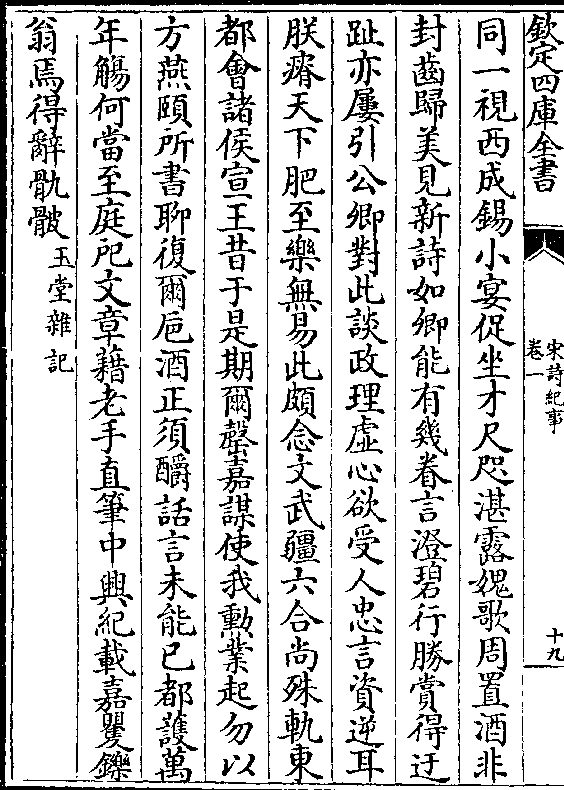 欽定四庫全書
宋詩紀事
卷一
十九
同一視西成錫小宴促坐才尺咫湛露媿歌周置酒非
封齒歸美見新詩如卿能有幾眷言澄碧行勝賞得迂
趾亦屢引公卿對此談政理虛心欲受人忠言資逆耳
朕瘠天下肥至樂無易此頗念文武疆六合尚殊軌東
都會諸侯宣王昔于是期爾罄嘉謀使我勳業起勿以
方燕頤所書聊復爾巵酒正須釂話言未能已都護萬
年觴何當至庭戺文章藉老手直筆中興紀載嘉矍鑠
翁焉得辭骩骳玉堂雜記